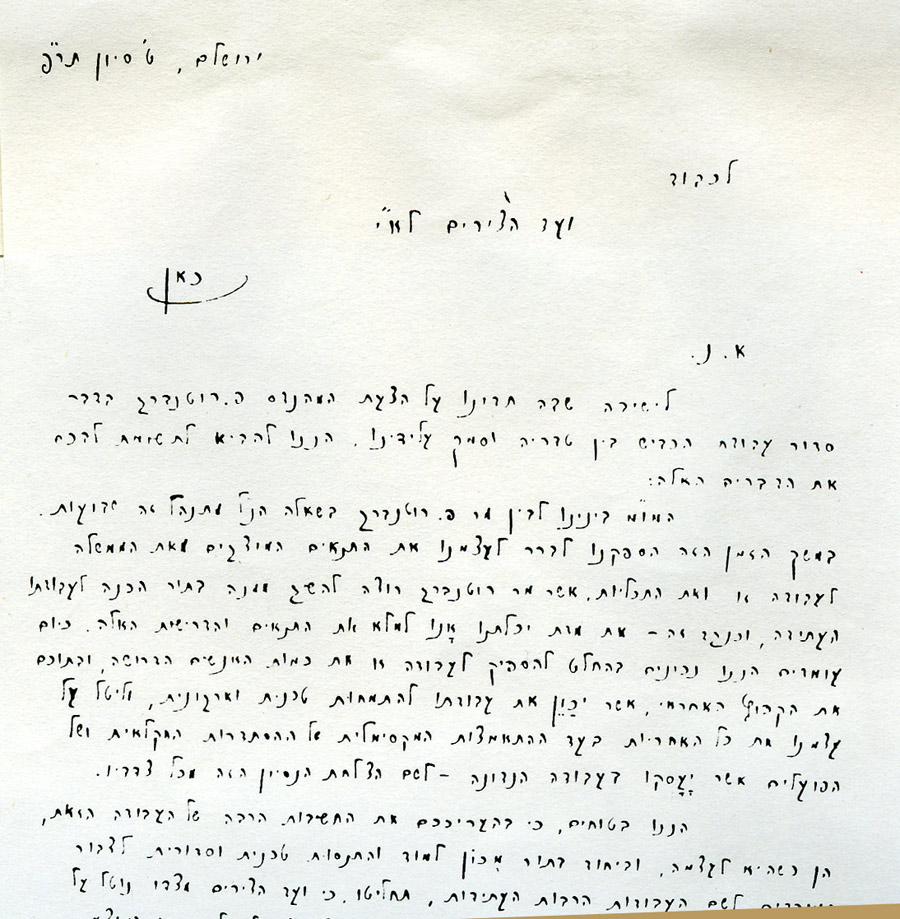 ירושלם, ט' סיון תר"פ
לכבוד
ועד הצירים לא"י
כאן
א. נ.
לישיבה שבה תדינו על הצעת המהנדס פ. רוטנברג בדבר
סדור עבודת הכביש בין טבריה וסמך עלידינו. הננו להביא לתשומת לבכם
את הדברים האלה:
המו"מ בינינו לבין מר פ. רוטנברג בשאלה הנ"ל מתנהל זה שבועות.
במשך הזמן הזה הספקנו לברר לעצמנו את התנאים המוצגים מאת הממשלה
לעבודה זו ואת התכליות, אשר מר רוטנברג רוצה להשיג ממנה בתור הכנה לעבודתו
העתידה, וכנגד זה – את מדת יכלתנו אנו למלא את התנאים והדרישות האלה. כיום
עומדים הננו נכונים בהחלט להספיק לעבודה זו את כמות האנשים הדרושה, ובתוכם
את הקבוץ האחראי, אשר יכון את עבודתו להתמחות טכנית וארגונית, וליטל על
עצמנו את כל האחריות בעד ההתאמצות המקסימלית של ההסתדרות החקלאית ושל
הפועלים אשר יעסקו בעבודה הנדונה – לשם הצלחת הנסיון הזה מכל צדדיו.
הננו בטוחים, כי בהעריככם את החשיבות הרבה של העבודה הזאת,
הן כשהיא לעצמה, וביחוד בתור מכון למוד והתנסות טכנית וסדורית לצבור
לשם העבודות הרבות העתידות, תחליטו, כי ועד הצירים מצדו נוטל על